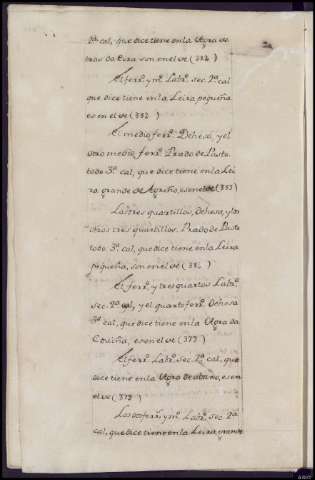 2ª cal, que dice tiene en la Agra de
tras da Eira son en el ve (384)
El ferrº y mº Labrº sec. 2ª cal
que dice tiene en la Leira pequeña
es en el ve (382)
El medio ferrº Dehesa, y el
otro medio ferrº Prado de Pasto
todo 3ª cal, que dice tiene en la Lei
ra grande de es en el ve (383)
Las tres quartillos, Dehesa, y los
otros tres quartillos, Prado de Pasto
todo 3ª cal, que dice tiene en la Leira
pequeña, son en el ve (38 )
El ferrº y tres quartos Labrº
sec. 2ª cal, y el quarto ferrº Dehesa
3ª cal, que dice tiene en la Agra da
es en el ve (377)
El ferrº Labrº sec. 2ª cal, que
dice tiene en la Agra de abajo, es en
el ve (378)
Los ferrº y mº Labrº sec. 2ª
cal, que dice tiene en la Leira grande